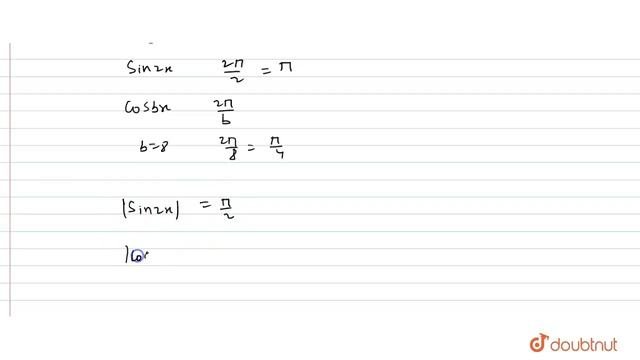 Sin2x 2π/2 = π
cosbx 2π/b
b=8 2π/8 = π/4
|Sin2x| = π/2
|co
doubtnut